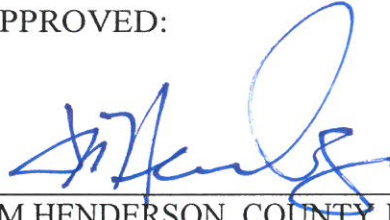 PPROVED:
M HENDERSON, COUNTY